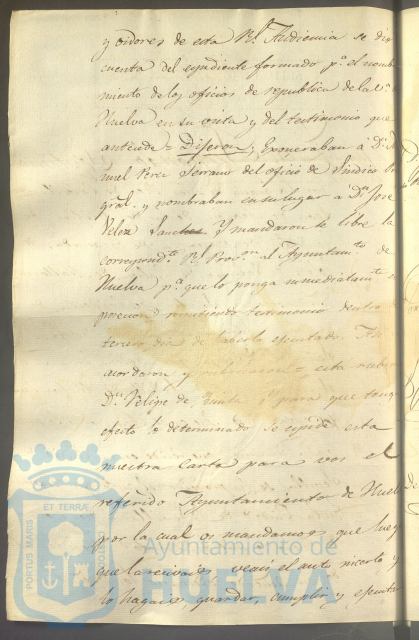 y oidores de esta Rl. Audiencia se dio
cuenta del espediente formado pa. el nombra
miento de los oficios de republica de la va. de
Huelva en su vista y del testimonio que
antecede = Dijeron: Exoneraban a Dn.
nuel Perez Serrano del oficio de Sindico
gral. y nombraban en su lugar a Dn. Jose
Velez Sanchez. Y mandaron se libre la
correspondte. Rl. Provon. al Ayuntamto. de
Huelva pa. que lo ponga inmediatamte.
posecion remitiendo testimonio dentro de
tercero dia de haberlo ejecutado. Asi
acordaron y rubricaron = esta rubricado
Dn. Felipe de Y para que tenga
efecto lo determinado se espide esta
nuestra carta para vos el
referido Ayuntamiento de Huelva
por la cual os mandamos que luego
que la recivais, veais el auto inserto y
lo hagais guardar, cumplir y ejecutar
PORTUS MARIS ET TERRAE
Ayuntamiento de
HUELVA